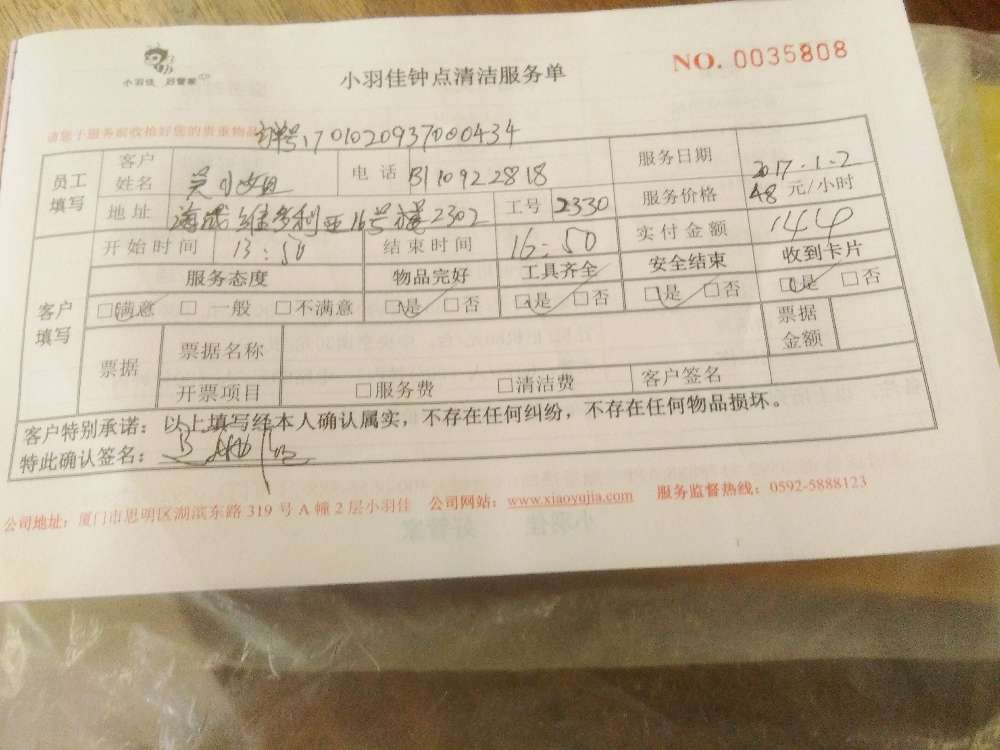 小羽佳 好管家
小羽佳钟点清洁服务单
NO. 0035808
请您于服务前收拾好您的贵重物品
单号:701020937000434
员工填写
客户姓名 吴小姐 电话 13110922818 服务日期 2017.1.2
地址 海晟维多利亚16号楼2302 工号 2330 服务价格 48 元/小时
客户填写
开始时间 13:50 结束时间 16:50 实付金额 144
服务态度 物品完好 工具齐全 安全结束 收到卡片
□满意 □一般 □不满意 □是 □否 □是 □否 □是 □否 □是 □否
票据 票据名称 票据金额
开票项目 □服务费 □清洁费 客户签名
客户特别承诺:以上填写经本人确认属实,不存在任何纠纷,不存在任何物品损坏。
特此确认签名:
公司地址:厦门市思明区湖滨东路 319 号 A 幢 2 层小羽佳 公司网站:www.xiaoyujia.com 服务监督热线:0592-5888123